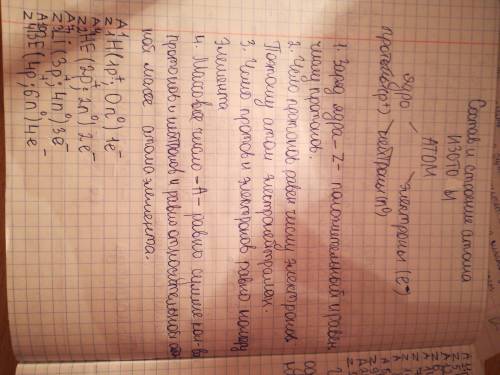 Состав и строение атома
ИЗОТО Ы
АТОМ
ядро электроны (e⁻)
протоны(p⁺) нейтроны(n⁰)
1. Заряд ядра - Z - положительный и равен
числу протонов.
2. Число протонов равно числу электронов
Потому атом электронейтрален.
3. Число протонов и электронов равно номеру
Элемента
4. Массовое число - А - равно сумме кол-ва
протонов и нейтронов и равно относительной
ной массе атома элемента.
A1
Z1 H (1p⁺, 0n⁰) 1e⁻
A4
Z2 HE (2p⁺, 2n⁰) 2e⁻
A7
Z3 Li (3p⁺, 4n⁰) 3e⁻
Z4 BE (4p; 6n⁰) 4e⁻